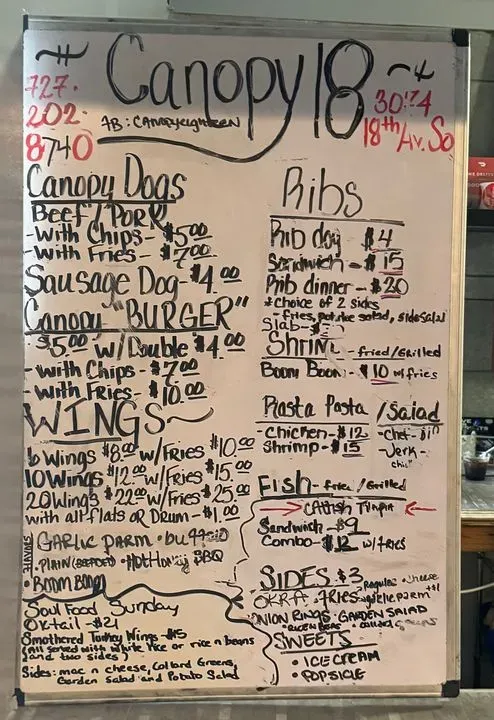 Canopy 18
727.
202.
8740
FB: CANOPYEIGHTEEN
3074
18th Av. So
Canopy Dogs
Beef/Pork
- With Chips - $5.00
- With Fries - $7.00
Sausage Dog - $4.00
Canopy "BURGER"
$5.00 w/Double $4.00
- with Chips - $7.00
- with Fries - $10.00
WINGS
6 Wings $8.00 w/Fries $10.00
10 Wings $12.00 w/Fries $15.00
20 Wings $22.00 w/Fries $25.00
with all flats or Drum - $1.00
GARLIC PARM • buffalo
• PLAIN (BREADED) • HOT HONEY BBQ
• BOOM BOOM
Soul Food Sunday
Oxtail - $21
Smothered Turkey Wings - $15
(All served with white rice or rice n beans
(and two sides)
Sides: mac n cheese, Collard Greens,
Garden salad and Potato Salad
Ribs
Rib dog - $4
Sandwich - $15
Rib dinner - $20
*choice of 2 sides
- fries, potatoe salad, side salad
Slab - $
Shrimp - fried/Grilled
Boom Boom - $10 w/fries
Rasta Pasta / Salad
- Chicken - $12
Shrimp - $15
- Chef -
- Jerk -
Fish - fried/Grilled
CATfish Tilapia
Sandwich - $9
Combo - $12 w/FRIES
SIDES $3
OKRA • FRIES Regular • cheese
ONION RINGS • GARDEN SALAD
SWEETS
• ICE CREAM
• POPSICLE